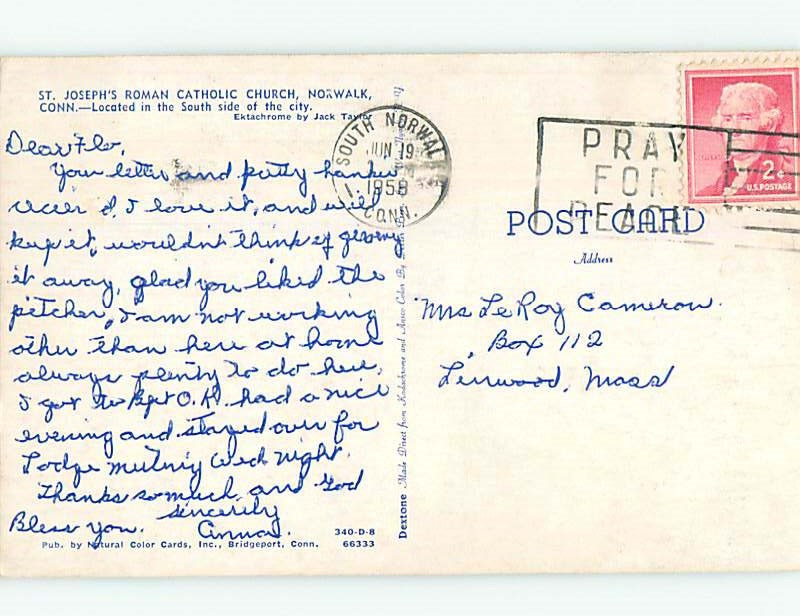 ST. JOSEPH'S ROMAN CATHOLIC CHURCH, NORWALK,
CONN.—Located in the South side of the city.
Ektachrome by Jack Taylor
Dear Flo,
Your letter and pretty hankie
rec'd. I love it, and will
keep it, wouldn't think of giving
it away, glad you liked the
pitcher, I am not working
other than here at home
always plenty to do here.
I got to Bpt O.K. had a nice
evening and stayed over for
Lodge meeting Wed night.
Thanks so much and God
Bless you. sincerely
Anna.
340-D-8
Pub. by Natural Color Cards, Inc., Bridgeport, Conn. 66333
Dextone Made Direct from Kodachrome and Ansco Color By
SOUTH NORWALK
JUN 19
1958
CONN.
PRAY
FOR
PEACE
2¢
U.S. POSTAGE
POST CARD
Address
Mrs LeRoy Cameron.
Box 112
Linwood, Mass